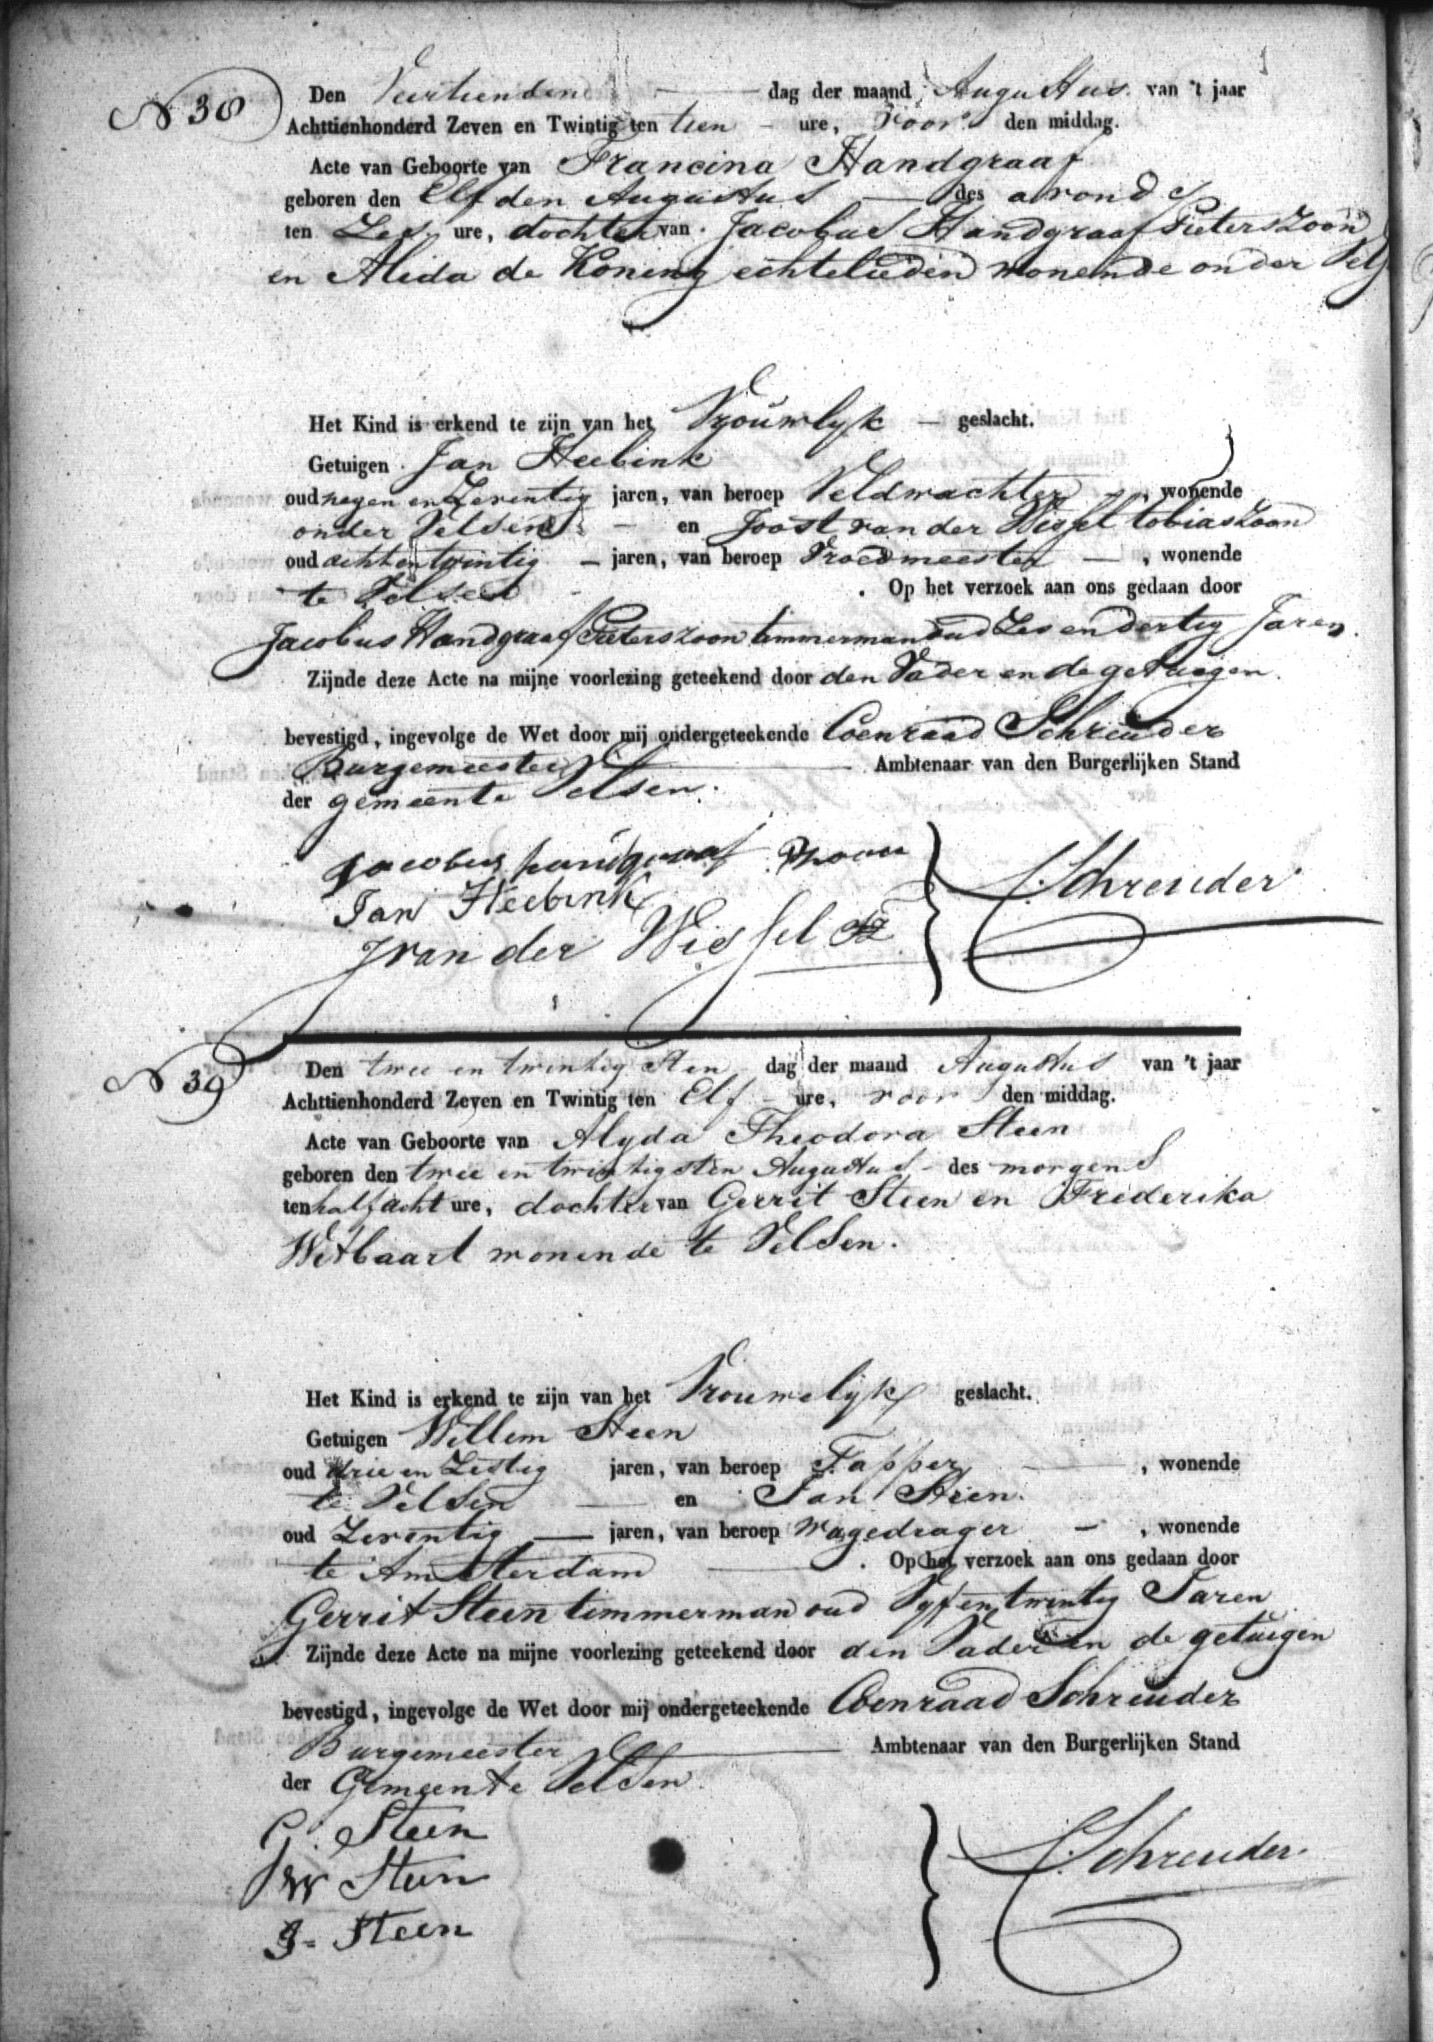 N 38
Den Veertienden dag der maand Augustus van 't jaar
Achttienhonderd Zeven en Twintig ten tien ure, voor den middag.
Acte van Geboorte van Francina Handgraaf
geboren den Elfden Augustus des avonds
ten Zes ure, dochter van Jacobus Handgraaf Pieterszoon
en Alida de Koning echtelieden wonende onder Velsen
Het Kind is erkend te zijn van het Vrouwlyk geslacht.
Getuigen Jan Heebink
oud negen en Zeventig jaren, van beroep Veldwachter, wonende
onder Velsen en Joost van der Wissel tobiaszoon
oud achtentwintig jaren, van beroep Vroedmeester, wonende
te Velsen. Op het verzoek aan ons gedaan door
Jacobus Handgraaf Pieterszoon timmerman oud Zes en dertig Jaren.
Zijnde deze Acte na mijne voorlezing geteekend door den Vader en de getuigen.
bevestigd, ingevolge de Wet door mij ondergeteekende Coenraad Schreuder
Burgemeester Ambtenaar van den Burgerlijken Stand
der gemeente Velsen.
Jacobus handgraaf Pzoon
Jan Heebink
J van der Wissel Tz
C. Schreuder
N 39
Den twee en twintigsten dag der maand Augustus van 't jaar
Achttienhonderd Zeven en Twintig ten Elf ure, voor den middag.
Acte van Geboorte van Alyda Theodora Steen
geboren den twee en twintigsten Augustus des morgens
ten half acht ure, dochter van Gerrit Steen en Frederika
Witbaart wonende te Velsen.
Het Kind is erkend te zijn van het Vrouwelijk geslacht.
Getuigen Willem Steen
oud drie en Zestig jaren, van beroep Tapper, wonende
te Velsen en Jan Steen
oud Zeventig jaren, van beroep wagedrager, wonende
te Amsterdam. Op het verzoek aan ons gedaan door
Gerrit Steen timmerman oud Vyf en twintig Jaren
Zijnde deze Acte na mijne voorlezing geteekend door den Vader en de getuigen
bevestigd, ingevolge de Wet door mij ondergeteekende Coenraad Schreuder
Burgemeester Ambtenaar van den Burgerlijken Stand
der Gemeente Velsen.
G. Steen
W Steen
J. Steen
C. Schreuder